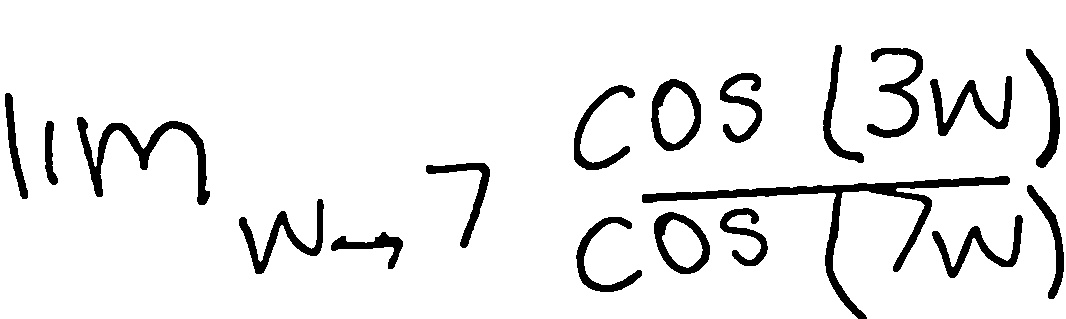 lim_{w→7} \frac{cos(3w)}{cos(7w)}